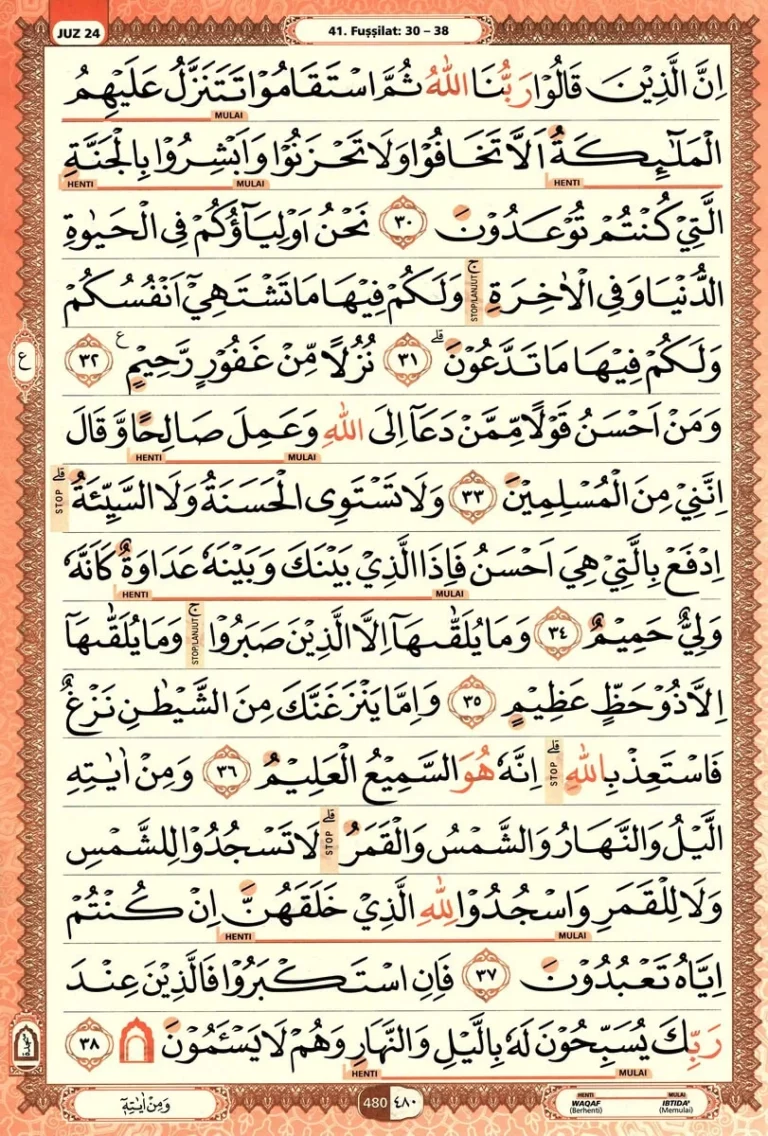 JUZ 24
41. Fuṣṣilat: 30 – 38
اِنَّ الَّذِيْنَ قَالُوْا رَبُّنَا اللّٰهُ ثُمَّ اسْتَقَامُوْا تَتَنَزَّلُ عَلَيْهِمُ
MULAI
الْمَلٰۤىِٕكَةُ اَلَّا تَخَافُوْا وَلَا تَحْزَنُوْا وَاَبْشِرُوْا بِالْجَنَّةِ
HENTI MULAI HENTI
الَّتِيْ كُنْتُمْ تُوْعَدُوْنَ ٣٠ نَحْنُ اَوْلِيَاۤؤُكُمْ فِى الْحَيٰوةِ
الدُّنْيَا وَفِى الْاٰخِرَةِ ۚ STOP/LANJUT وَلَكُمْ فِيْهَا مَا تَشْتَهِيْٓ اَنْفُسُكُمْ
وَلَكُمْ فِيْهَا مَا تَدَّعُوْنَ ۗ ٣١ نُزُلًا مِّنْ غَفُوْرٍ رَّحِيْمٍ ع ٣٢
ع
وَمَنْ اَحْسَنُ قَوْلًا مِّمَّنْ دَعَآ اِلَى اللّٰهِ وَعَمِلَ صَالِحًا وَّقَالَ
HENTI MULAI
اِنَّنِيْ مِنَ الْمُسْلِمِيْنَ ٣٣ وَلَا تَسْتَوِى الْحَسَنَةُ وَلَا السَّيِّئَةُ ۗ STOP
اِدْفَعْ بِالَّتِيْ هِيَ اَحْسَنُ فَاِذَا الَّذِيْ بَيْنَكَ وَبَيْنَهٗ عَدَاوَةٌ كَاَنَّهٗ
HENTI MULAI
وَلِيٌّ حَمِيْمٌ ٣٤ وَمَا يُلَقّٰىهَآ اِلَّا الَّذِيْنَ صَبَرُوْا ۚ STOP/LANJUT وَمَا يُلَقّٰىهَآ
اِلَّا ذُوْ حَظٍّ عَظِيْمٍ ٣٥ وَاِمَّا يَنْزَغَنَّكَ مِنَ الشَّيْطٰنِ نَزْغٌ
فَاسْتَعِذْ بِاللّٰهِ ۗ STOP اِنَّهٗ هُوَ السَّمِيْعُ الْعَلِيْمُ ٣٦ وَمِنْ اٰيٰتِهِ
الَّيْلُ وَالنَّهَارُ وَالشَّمْسُ وَالْقَمَرُ ۗ STOP لَا تَسْجُدُوْا لِلشَّمْسِ
وَلَا لِلْقَمَرِ وَاسْجُدُوْا لِلّٰهِ الَّذِيْ خَلَقَهُنَّ اِنْ كُنْتُمْ
HENTI MULAI
اِيَّاهُ تَعْبُدُوْنَ ٣٧ فَاِنِ اسْتَكْبَرُوْا فَالَّذِيْنَ عِنْدَ
رَبِّكَ يُسَبِّحُوْنَ لَهٗ بِالَّيْلِ وَالنَّهَارِ وَهُمْ لَا يَسْـَٔمُوْنَ ۩ ٣٨
HENTI MULAI
وَمِنْ اٰيٰتِهٖٓ
480 ٤٨٠
HENTI MULAI
WAQAF IBTIDA'
(Berhenti) (Memulai)